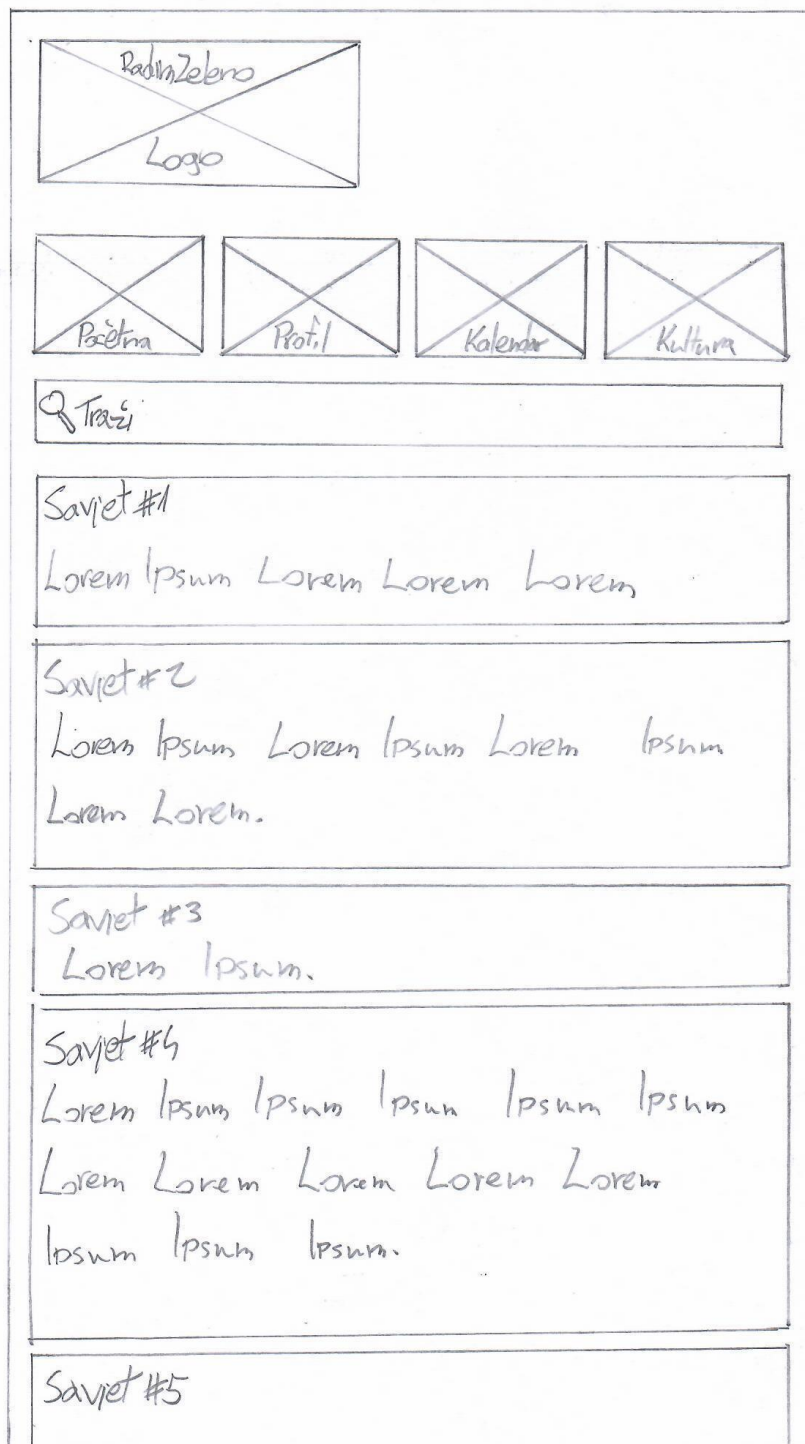 RadimZeleno
Logo
Početna
Profil
Kalendar
Kultura
Traži
Savjet #1
Lorem Ipsum Lorem Lorem Lorem
Savjet #2
Lorem Ipsum Lorem Ipsum Lorem Ipsum
Lorem Lorem.
Savjet #3
Lorem Ipsum.
Savjet #4
Lorem Ipsum Ipsum Ipsum Ipsum Ipsum
Lorem Lorem Lorem Lorem Lorem
Ipsum Ipsum Ipsum.
Savjet #5